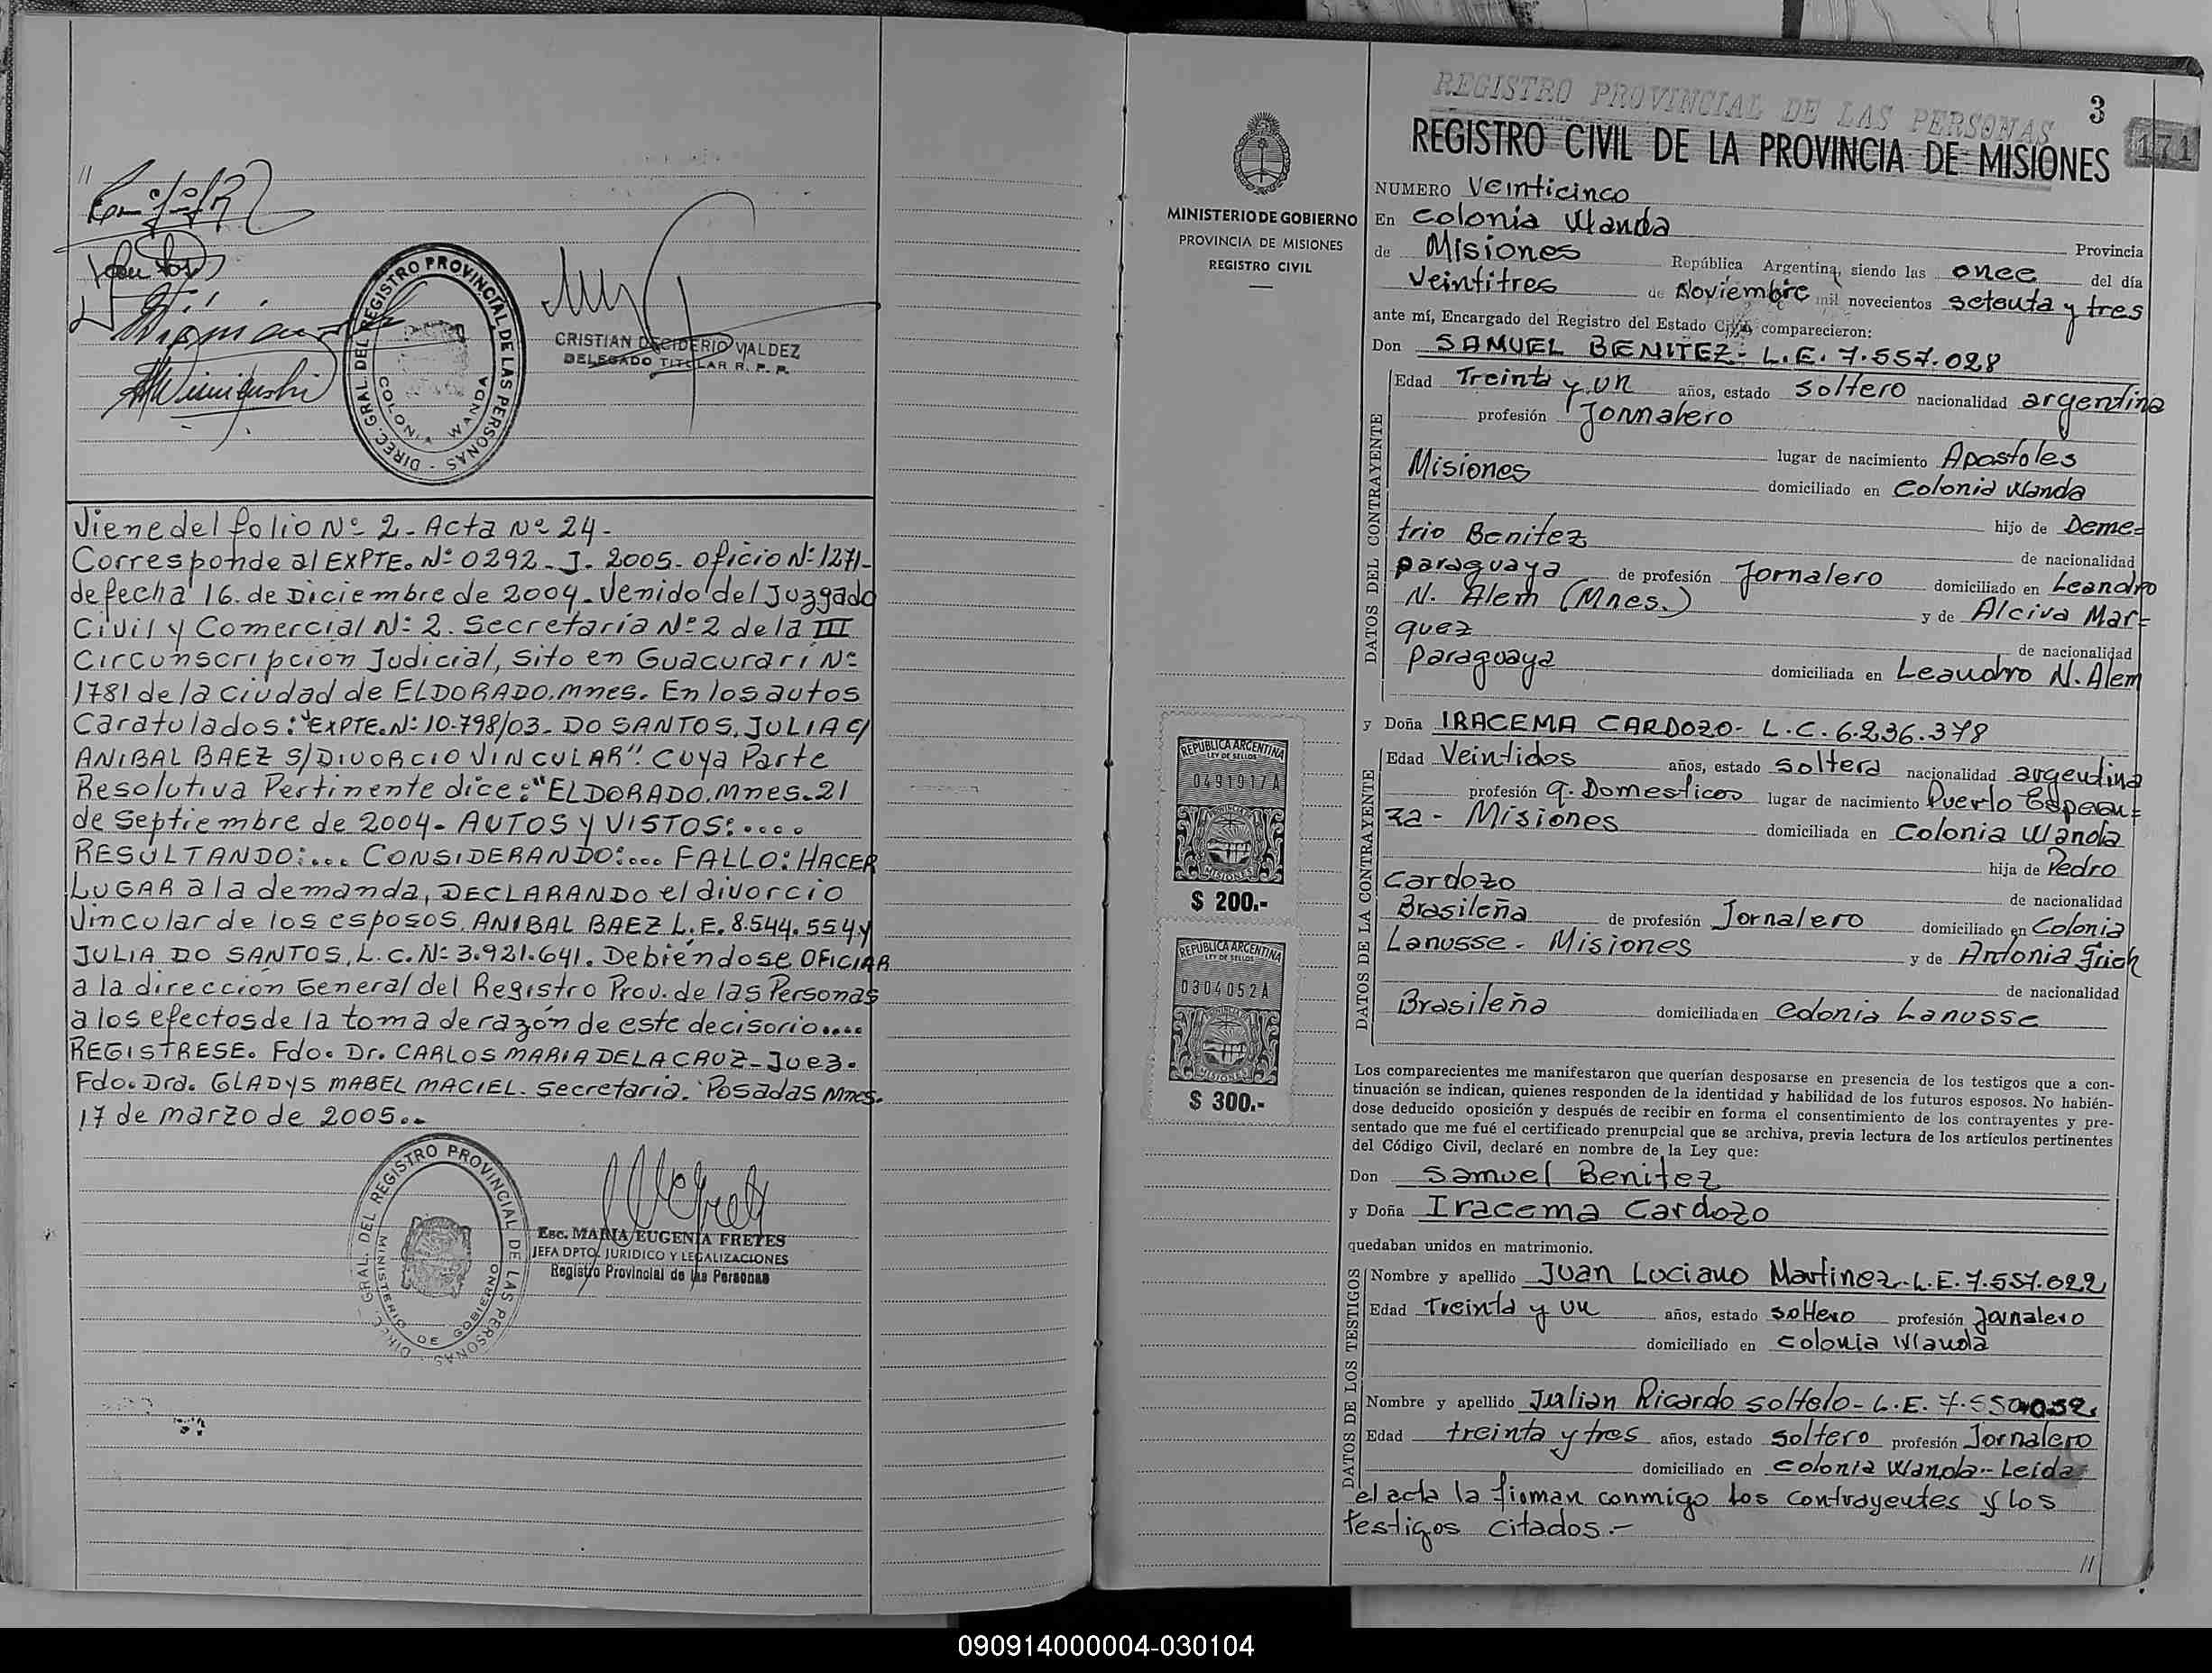 //
DIREC. GRAL. DEL REGISTRO PROVINCIAL DE LAS PERSONAS -
COLONIA WANDA
CRISTIAN DECIDERIO VALDEZ
DELEGADO TITULAR R. P. P.
Viene del folio Nº 2 - Acta Nº 24 -
Corresponde al EXPTE. Nº 0292 - J. 2005 - oficio Nº 1271 -
de fecha 16. de Diciembre de 2004. Venido del Juzgado
Civil y Comercial Nº 2. Secretaría Nº 2 de la III
Circunscripción Judicial, sito en Guacurarí Nº
1781 de la ciudad de ELDORADO. Mnes. En los autos
Caratulados: "EXPTE. Nº 10.798/03 - DO SANTOS, JULIA C/
ANIBAL BAEZ S/ DIVORCIO VINCULAR". Cuya Parte
Resolutiva Pertinente dice: "ELDORADO. Mnes. 21
de Septiembre de 2004. AUTOS Y VISTOS: ....
RESULTANDO: ... CONSIDERANDO: .... FALLO: HACER
LUGAR a la demanda, DECLARANDO el divorcio
Vincular de los esposos. ANIBAL BAEZ L.E. 8.544.554 y
JULIA DO SANTOS, L.C. Nº 3.921.641. Debiéndose OFICIAR
a la dirección General del Registro Prov. de las Personas
a los efectos de la toma de razón de este decisorio ....
REGISTRESE. Fdo. Dr. CARLOS MARIA DE LA CRUZ - Juez.
Fdo. Dra. GLADYS MABEL MACIEL. Secretaria. Posadas Mnes.
17 de marzo de 2005. -
DIREC. GRAL. DEL REGISTRO PROVINCIAL DE LAS PERSONAS -
MINISTERIO DE GOBIERNO
Esc. MARIA EUGENIA FRETES
JEFA DPTO. JURIDICO Y LEGALIZACIONES
Registro Provincial de las Personas
REGISTRO PROVINCIAL DE LAS PERSONAS
3
171
REGISTRO CIVIL DE LA PROVINCIA DE MISIONES
MINISTERIO DE GOBIERNO
PROVINCIA DE MISIONES
REGISTRO CIVIL
REPUBLICA ARGENTINA
LEY DE SELLOS
0491917A
MISIONES
$ 200.-
REPUBLICA ARGENTINA
LEY DE SELLOS
0304052A
MISIONES
$ 300.-
NUMERO Veinticinco
En Colonia Wanda Provincia
de Misiones República Argentina, siendo las once del día
Veintitres de Noviembre mil novecientos setenta y tres
ante mí, Encargado del Registro del Estado Civil, comparecieron:
Don SAMUEL BENITEZ - L.E. 7.557.028
DATOS DEL CONTRAYENTE
Edad Treinta y un años, estado soltero nacionalidad argentina
profesión Jornalero
lugar de nacimiento Apostoles
Misiones domiciliado en Colonia Wanda
hijo de Deme=
trio Benitez de nacionalidad
paraguaya de profesión Jornalero domiciliado en Leandro
N. Alem (Mnes.) y de Alciva Mar=
quez de nacionalidad
paraguaya domiciliada en Leandro N. Alem
y Doña IRACEMA CARDOZO - L.C. 6.236.378
DATOS DE LA CONTRAYENTE
Edad Veintidos años, estado soltera nacionalidad argentina
profesión q. Domesticos lugar de nacimiento Puerto Esperan=
za - Misiones domiciliada en Colonia Wanda
hija de Pedro
Cardozo de nacionalidad
Brasileña de profesión Jornalero domiciliado en Colonia
Lanusse - Misiones y de Antonia Frich
de nacionalidad
Brasileña domiciliada en Colonia Lanusse
Los comparecientes me manifestaron que querían desposarse en presencia de los testigos que a con-
tinuación se indican, quienes responden de la identidad y habilidad de los futuros esposos. No habién-
dose deducido oposición y después de recibir en forma el consentimiento de los contrayentes y pre-
sentado que me fué el certificado prenupcial que se archiva, previa lectura de los artículos pertinentes
del Código Civil, declaré en nombre de la Ley que:
Don Samuel Benitez
y Doña Iracema Cardozo
quedaban unidos en matrimonio.
DATOS DE LOS TESTIGOS
Nombre y apellido Juan Luciano Martinez - L.E. 7.557.022
Edad Treinta y un años, estado soltero profesión Jornalero
domiciliado en Colonia Wanda
Nombre y apellido Julian Ricardo Soltelo - L.E.
Edad treinta y tres años, estado soltero profesión Jornalero
domiciliado en Colonia Wanda - Leida
el acta la firman conmigo los contrayentes y los
testigos citados. -
//
090914000004-030104